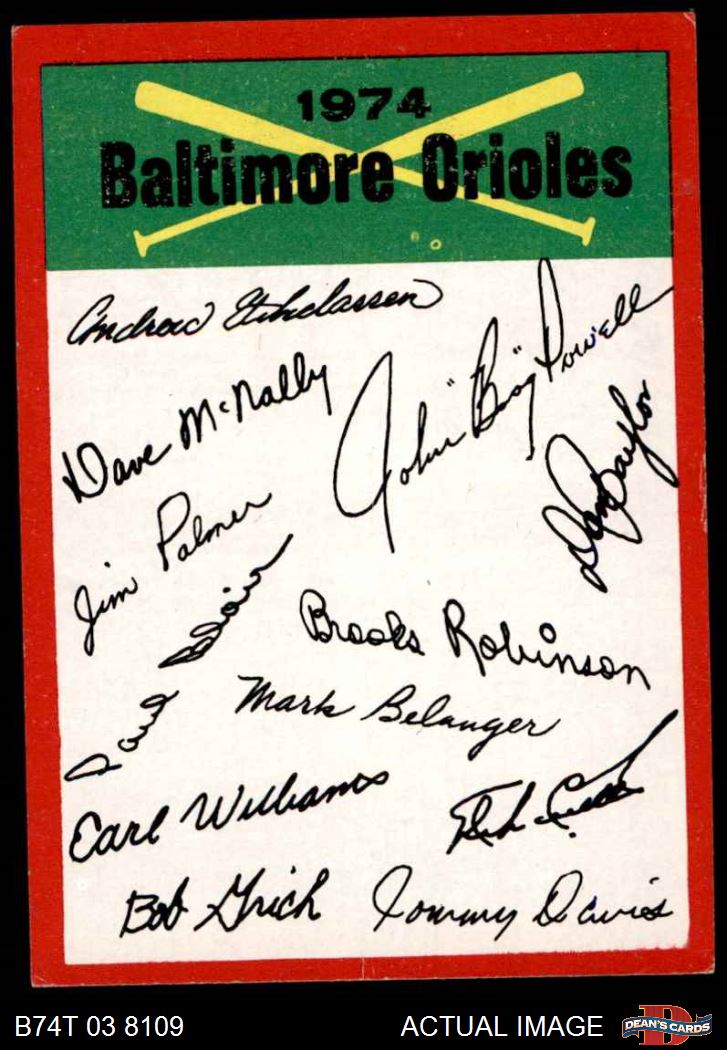 1974
Baltimore Orioles
Andrew Etchebarren
Dave McNally
John "Boog" Powell
Don Baylor
Jim Palmer
Paul Blair
Brooks Robinson
Mark Belanger
Earl Williams
Bob Grich
Tommy Davis
B74T 03 8109
ACTUAL IMAGE
D
DEAN'S CARDS